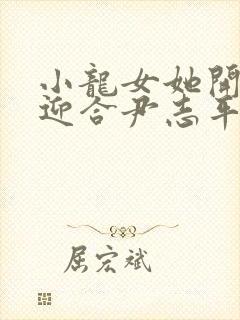 小龍女她開
迎合尹志平
屈宏斌